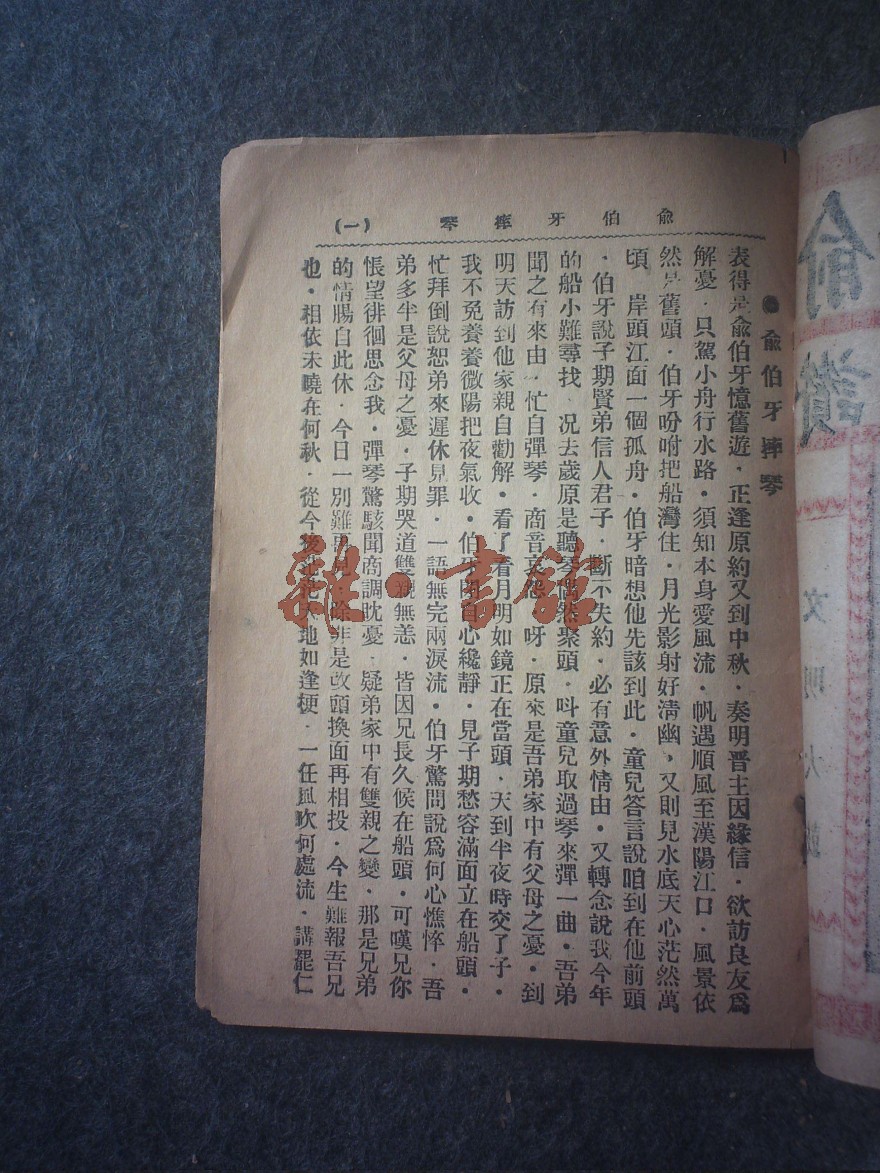 俞伯牙摔琴 (一)
●俞伯牙摔琴
表得是俞伯牙憶舊遊．正逢原約又到中秋．奏明晋主因緣信．欲訪良友爲
解憂．只駕小舟行水路．須知本身愛風流．帆遇順風至漢陽江口．風景依
然是舊頭．伯牙吩咐把船灣住．月光影射好淸幽．又則見水底天心茫然萬
頃　岸頭江面一個孤舟．伯牙暗想他先該到此．童兒答言說咱到在他前頭
．伯牙說子期賢弟信人君子．斷不失約．必有意外情由．又轉念說我今年
的船小難尋找　況去歲原是聽琴偶然聚頭．呌童兒取過琴來彈一曲．吾弟
聞之有來由．忙自彈琴．商音哀怨．呀．原來是吾弟家中有父母之憂．到
明天訪到他家親自勸解．看了看月明如鏡正在當頭．天到半夜時交了子．
我不免養養微陽把夜氣收．伯牙閉目心纔靜．見子期愁容滿面立在船頭．
忙拜倒說恕弟來遲休見罪．一語無完兩淚流．伯牙驚問說爲何心憔悴．吾
弟多半是父母之憂．子期哭道雙親無恙．皆因兄長久候在船頭．可嘆兄你
悵望徘徊思念我．彈琴驚駭聞商調眈憂　疑弟家中有雙親之變．那是兄弟
的情腸自此休．今日一別難再見．除非是改頭換面再相投．今生難報吾兄
也．相依未曉在何秋．從今後茫茫大地如逢梗．一任風吹何處流．講罷仁
俞
讚
文明大
雜·書館